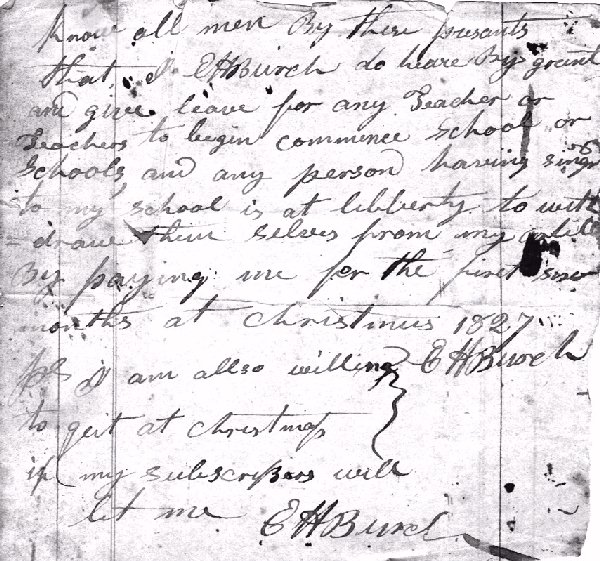 Know all men By these presents
that I EHBurch do heare By grant
and give leave for any Teacher or
Teachers to begin commence school or
Schools and any person having
to my school is at libberty to with
= draw them selves from my
By paying me for the first
months at Christmus 1827
EHBurch
I am allso willing
to quit at Christmas
if my subscribers will
let me EHBurch